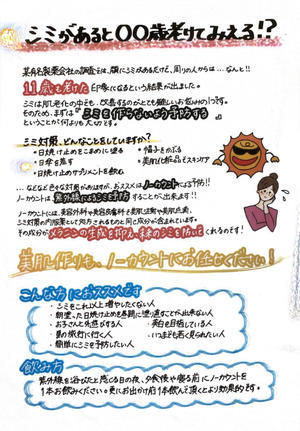 シミがあると〇〇歳老けてみえる!?
某有名製薬会社の調査では、顔にシミがあるだけで、周りの人からは…なんと!!
11歳も老けた印象になるという結果が出ました。
シミは肌老化の中でも、改善するのがとても難しいお悩みの1つです。
そのため、まずは『シミを作らないよう予防する』
ということが何よりも大切です。
シミ対策、どんなことをしていますか?
・日焼け止めをこまめに塗る
・帽子をかぶる
・日傘を差す
・美肌化粧品でスキンケア
・日焼け止めサプリメントを飲む
……などなど色々な対策がありますが、おススメはノーカウントによる予防!!
ノーカウントは、紫外線によるシミを予防することが出来ます!!
ノーカウントには、美容外科や美容皮膚科で美肌注射や美肌点滴、
シミ対策の内服薬として処方されるものと同じ成分が含まれています。
その成分がメラニンの生成を抑え、未来のシミを防いでくれるのです!
美肌作りも、ノーカウントにお任せください!
こんな方におススメです
・シミをこれ以上増やしたくない人
・朝塗った日焼け止めを昼間に塗り直すことが出来ない人
・お子さんと外遊びがする人
・美白を目指している人
・夏の旅行に行く人
・いつまでも若く見られたい人
・簡単にシミを予防したい人
飲み方
紫外線を浴びたと感じる日の夜、夕食後や寝る前にノーカウントを
1本お飲みください。更にお出かけ前1本飲んで頂くとより効果的です。